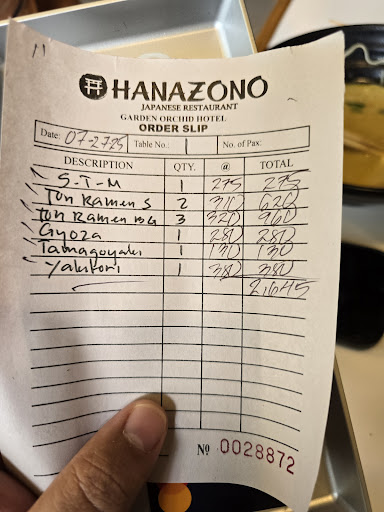 HANAZONO
JAPANESE RESTAURANT
GARDEN ORCHID HOTEL
ORDER SLIP
Date: 07-27-25 Table No.: 1 No. of Pax:
DESCRIPTION QTY. @ TOTAL
S-T-M 1 275 275
Ton Ramen S 2 310 620
Ton Ramen BG 3 320 960
Gyoza 1 280 280
Tamagoyaki 1 130 130
Yakitori 1 380 380
2,645
Nº 0028872